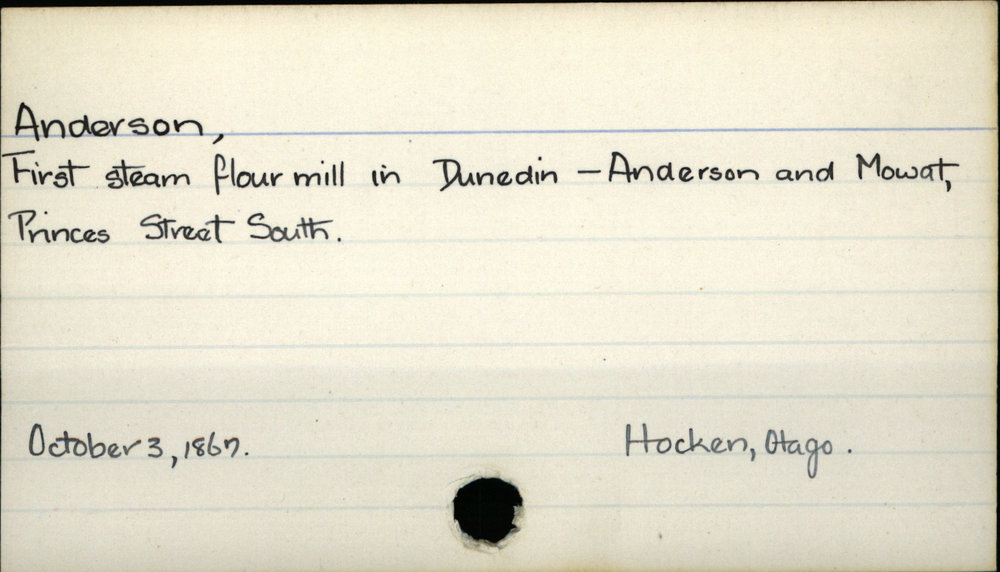 Anderson,
First steam flour mill in Dunedin - Anderson and Mowat,
Princes Street South.
October 3, 1867. Hocken, Otago.